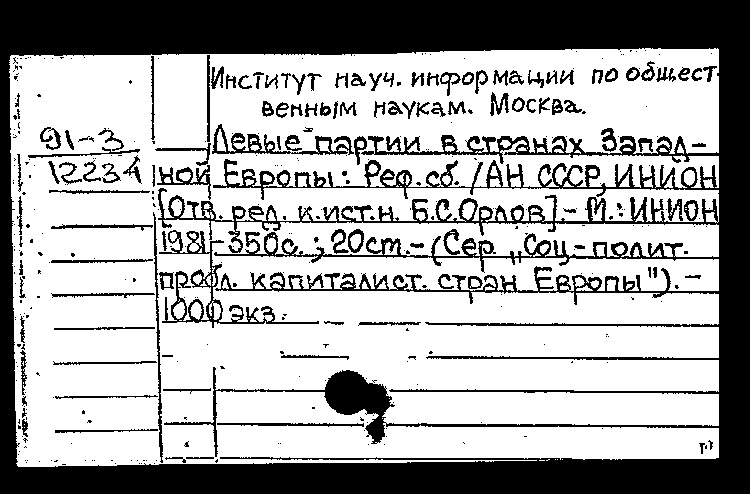 Институт науч. информации по общест-
венным наукам. Москва.
91-3
12234
Левые партии в странах Запад-
ной Европы: Реф. сб. / АН СССР, ИНИОН
[Отв. ред. к.ист.н. Б.С.Орлов].- М.: ИНИОН
1981-350с.; 20см.- (Сер. „Соц-полит.
пробл. капиталист. стран Европы").-
1000 экз.